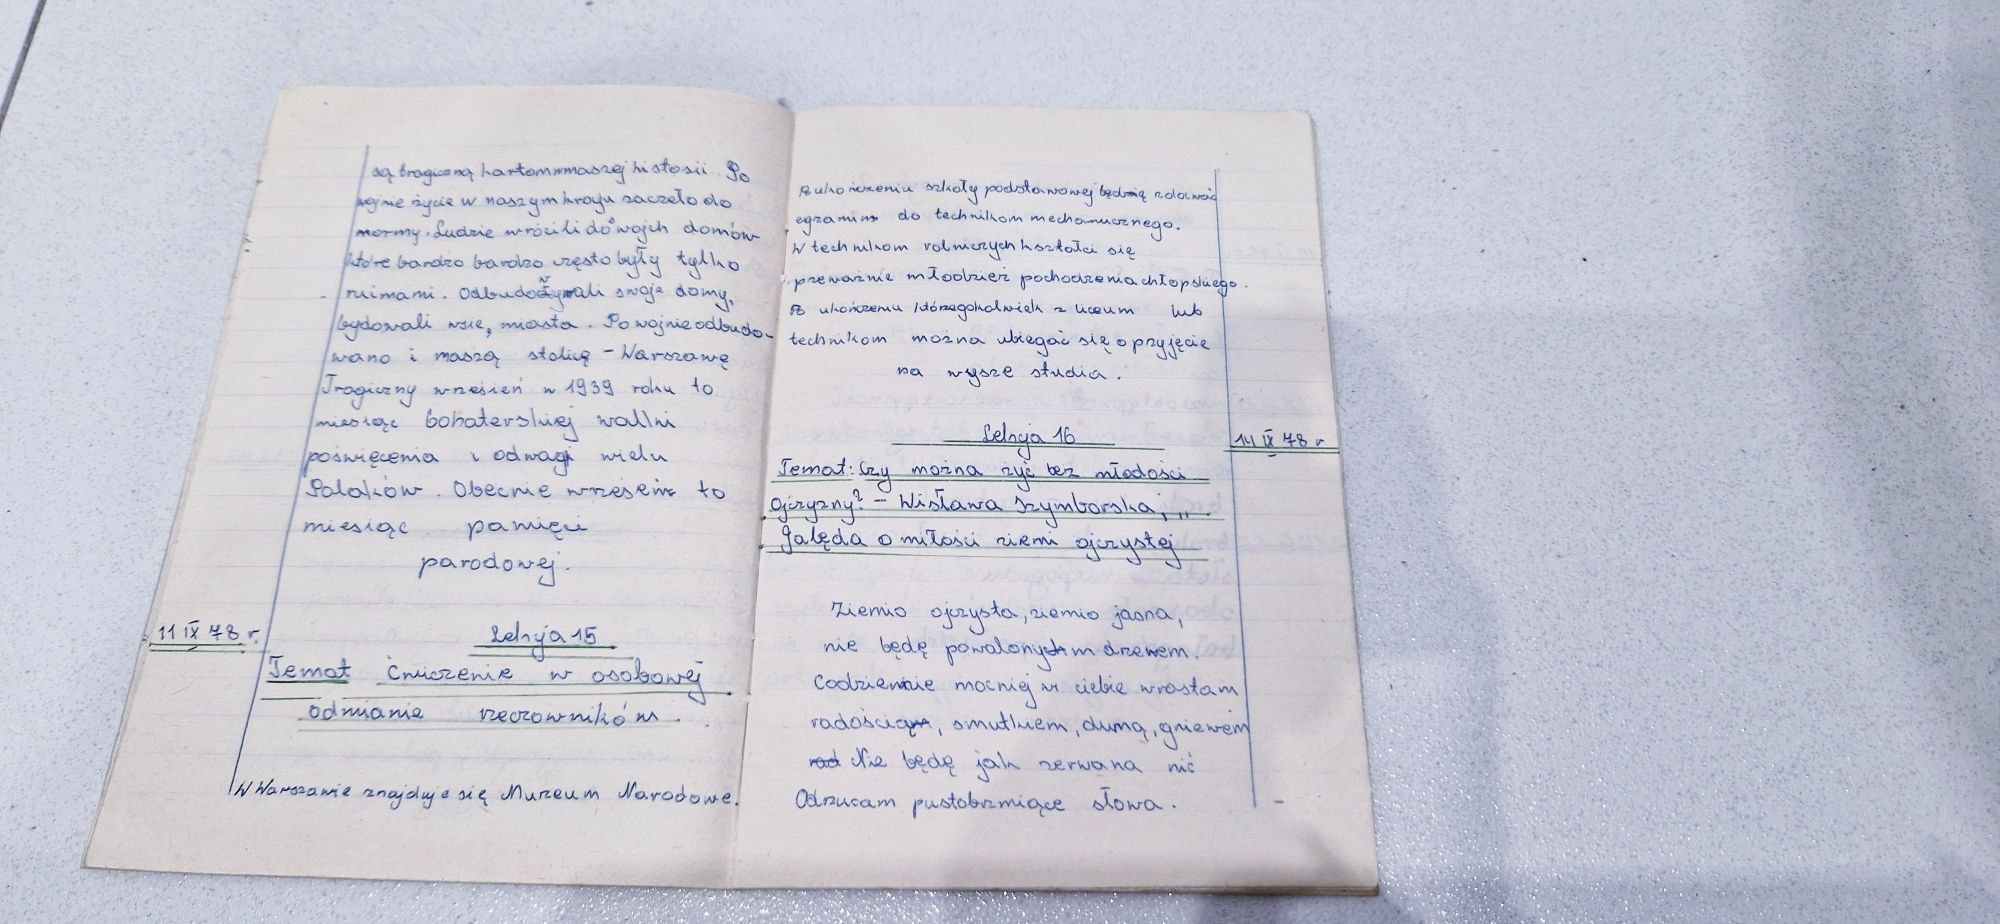 są tragiczną kartom naszej histosii. Po
wojnie życie w naszym kraju zaczeło do
normy. Ludzie wrócili do swojch domów
które bardzo bardzo często były tylko
ruinami. Odbudowywali swoje domy,
bydowali wsie, miasta. Po wojnie odbudo-
wano i naszą stolicę - Warszawę
Tragiczny wrzesień w 1939 roku to
miesiąc bohaterskiej walki
poświęcenia i odwagi wielu
Polaków. Obecnie wrzesień to
miesiąc pamięci
parodowej.
11 IX 78 r. Lekcja 15
Temat Ćwiczenie w osobowej
odmianie rzeczowników.
W Warszawie znajduje się Muzeum Narodowe.
Po ukończeniu szkoły podstawowej będzię zdawać
egzamin do technikom mechanicznego.
W technikom rolniczych kształci się
przeważnie młodzież pochodzenia chłopskiego.
Po ukończeniu któregokolwiek z liceum lub
technikom można ubiegać się o przyjęcie
na wysze studia.
Lekcja 16 14 IX 78 r
Temat: Czy można żyć bez młodości
ojczyzny? - Wisława Szymborska, ,,
Galęda o miłości ziemi ojczystej
Ziemio ojczysta, ziemio jasna,
nie będę powalonym drzewem.
Codziennie mocniej w ciebie wrastam
radością, smutkiem, dumą, gniewem
Nie będę jak zerwana nić
Odrzucam pustobrzmiące słowa.